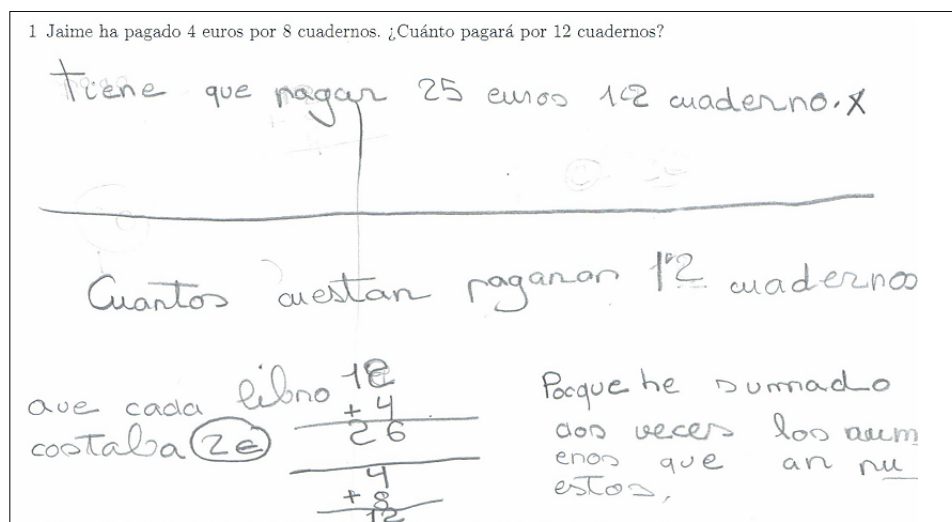 1 Jaime ha pagado 4 euros por 8 cuadernos. ¿Cuánto pagará por 12 cuadernos?
Tiene que pagar 25 euros 12 cuaderno. x
Cuantos cuestan paganan 12 cuadernos
que cada libno
costaba 2€
12
+ 4
26
4
+ 8
12
Pocque he sumado
dos veces los num
enos que an nu
estos,